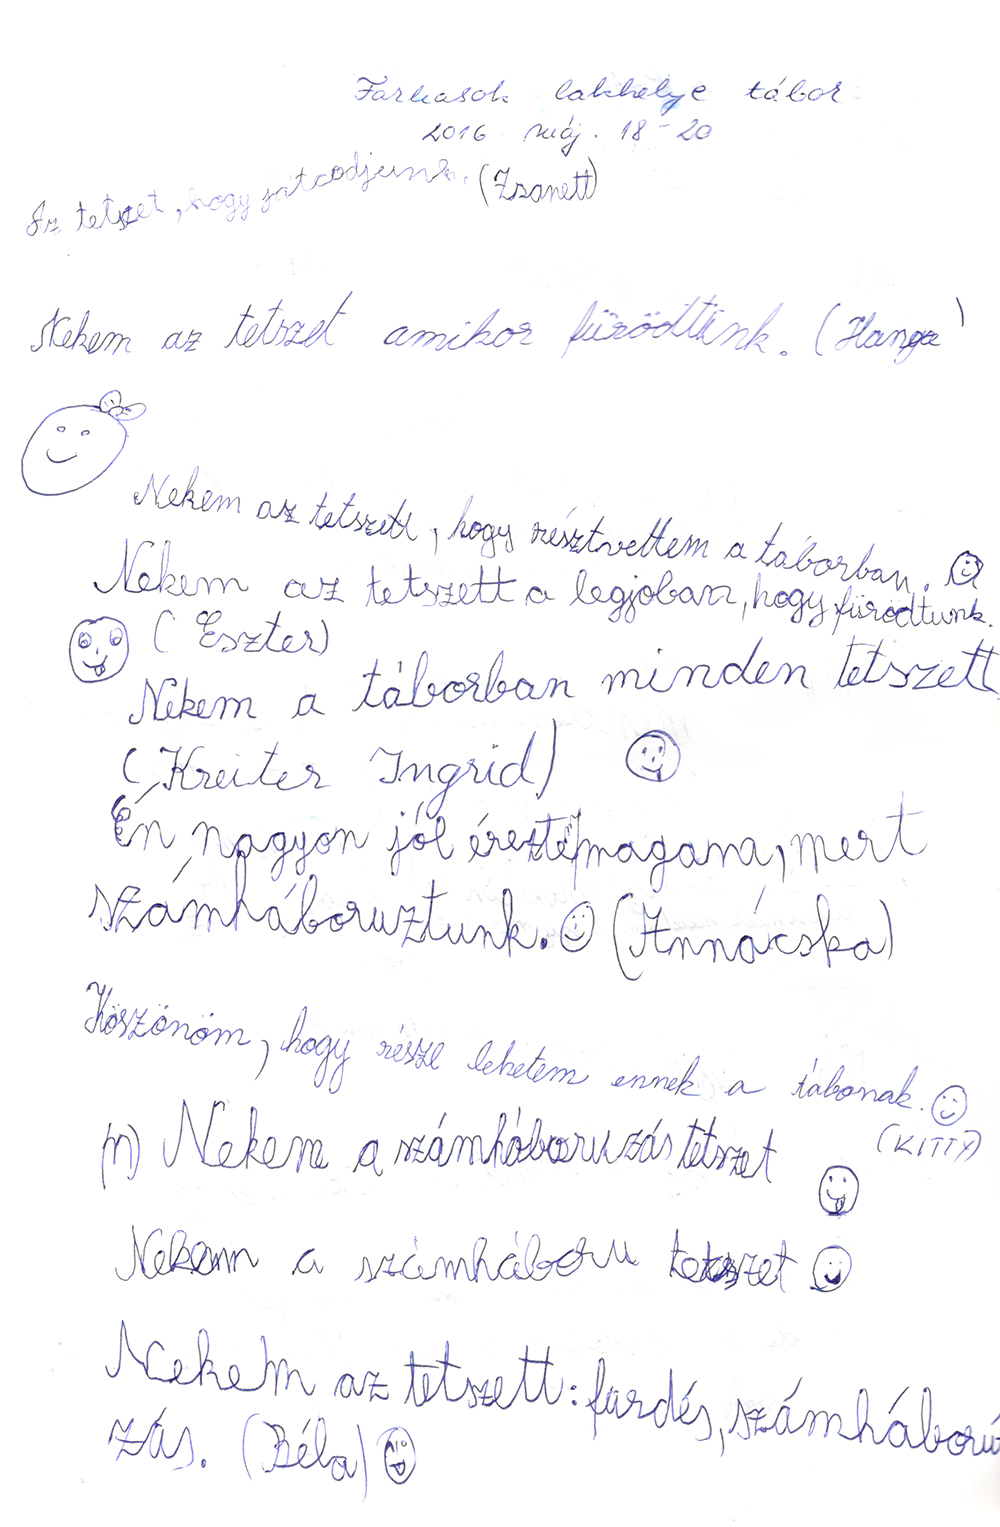 Farkasok lakhelye tábor
2016 máj. 18-20
Az tetszet, hogy játcodjunk. (Zsanett)
Nekem az tetszet amikor fürödtünk. (Hanga)
Nekem az tetszett, hogy résztvettem a táborban.
Nekem az tetszett a legjoban, hogy fürödtunk.
(Eszter)
Nekem a táborban minden tetszett
(Kreiter Ingrid)
Én nagyon jól éreztem magana, mert
számháboruztunk. (Annácska)
Köszönöm, hogy része lehetem ennek a tábonak.
(KITTI)
(n) Nekem a számháboruzás tetszet
Nekem a számháboru tetszet
Nekem az tetszett: furdés, számháború
zás. (Béla)